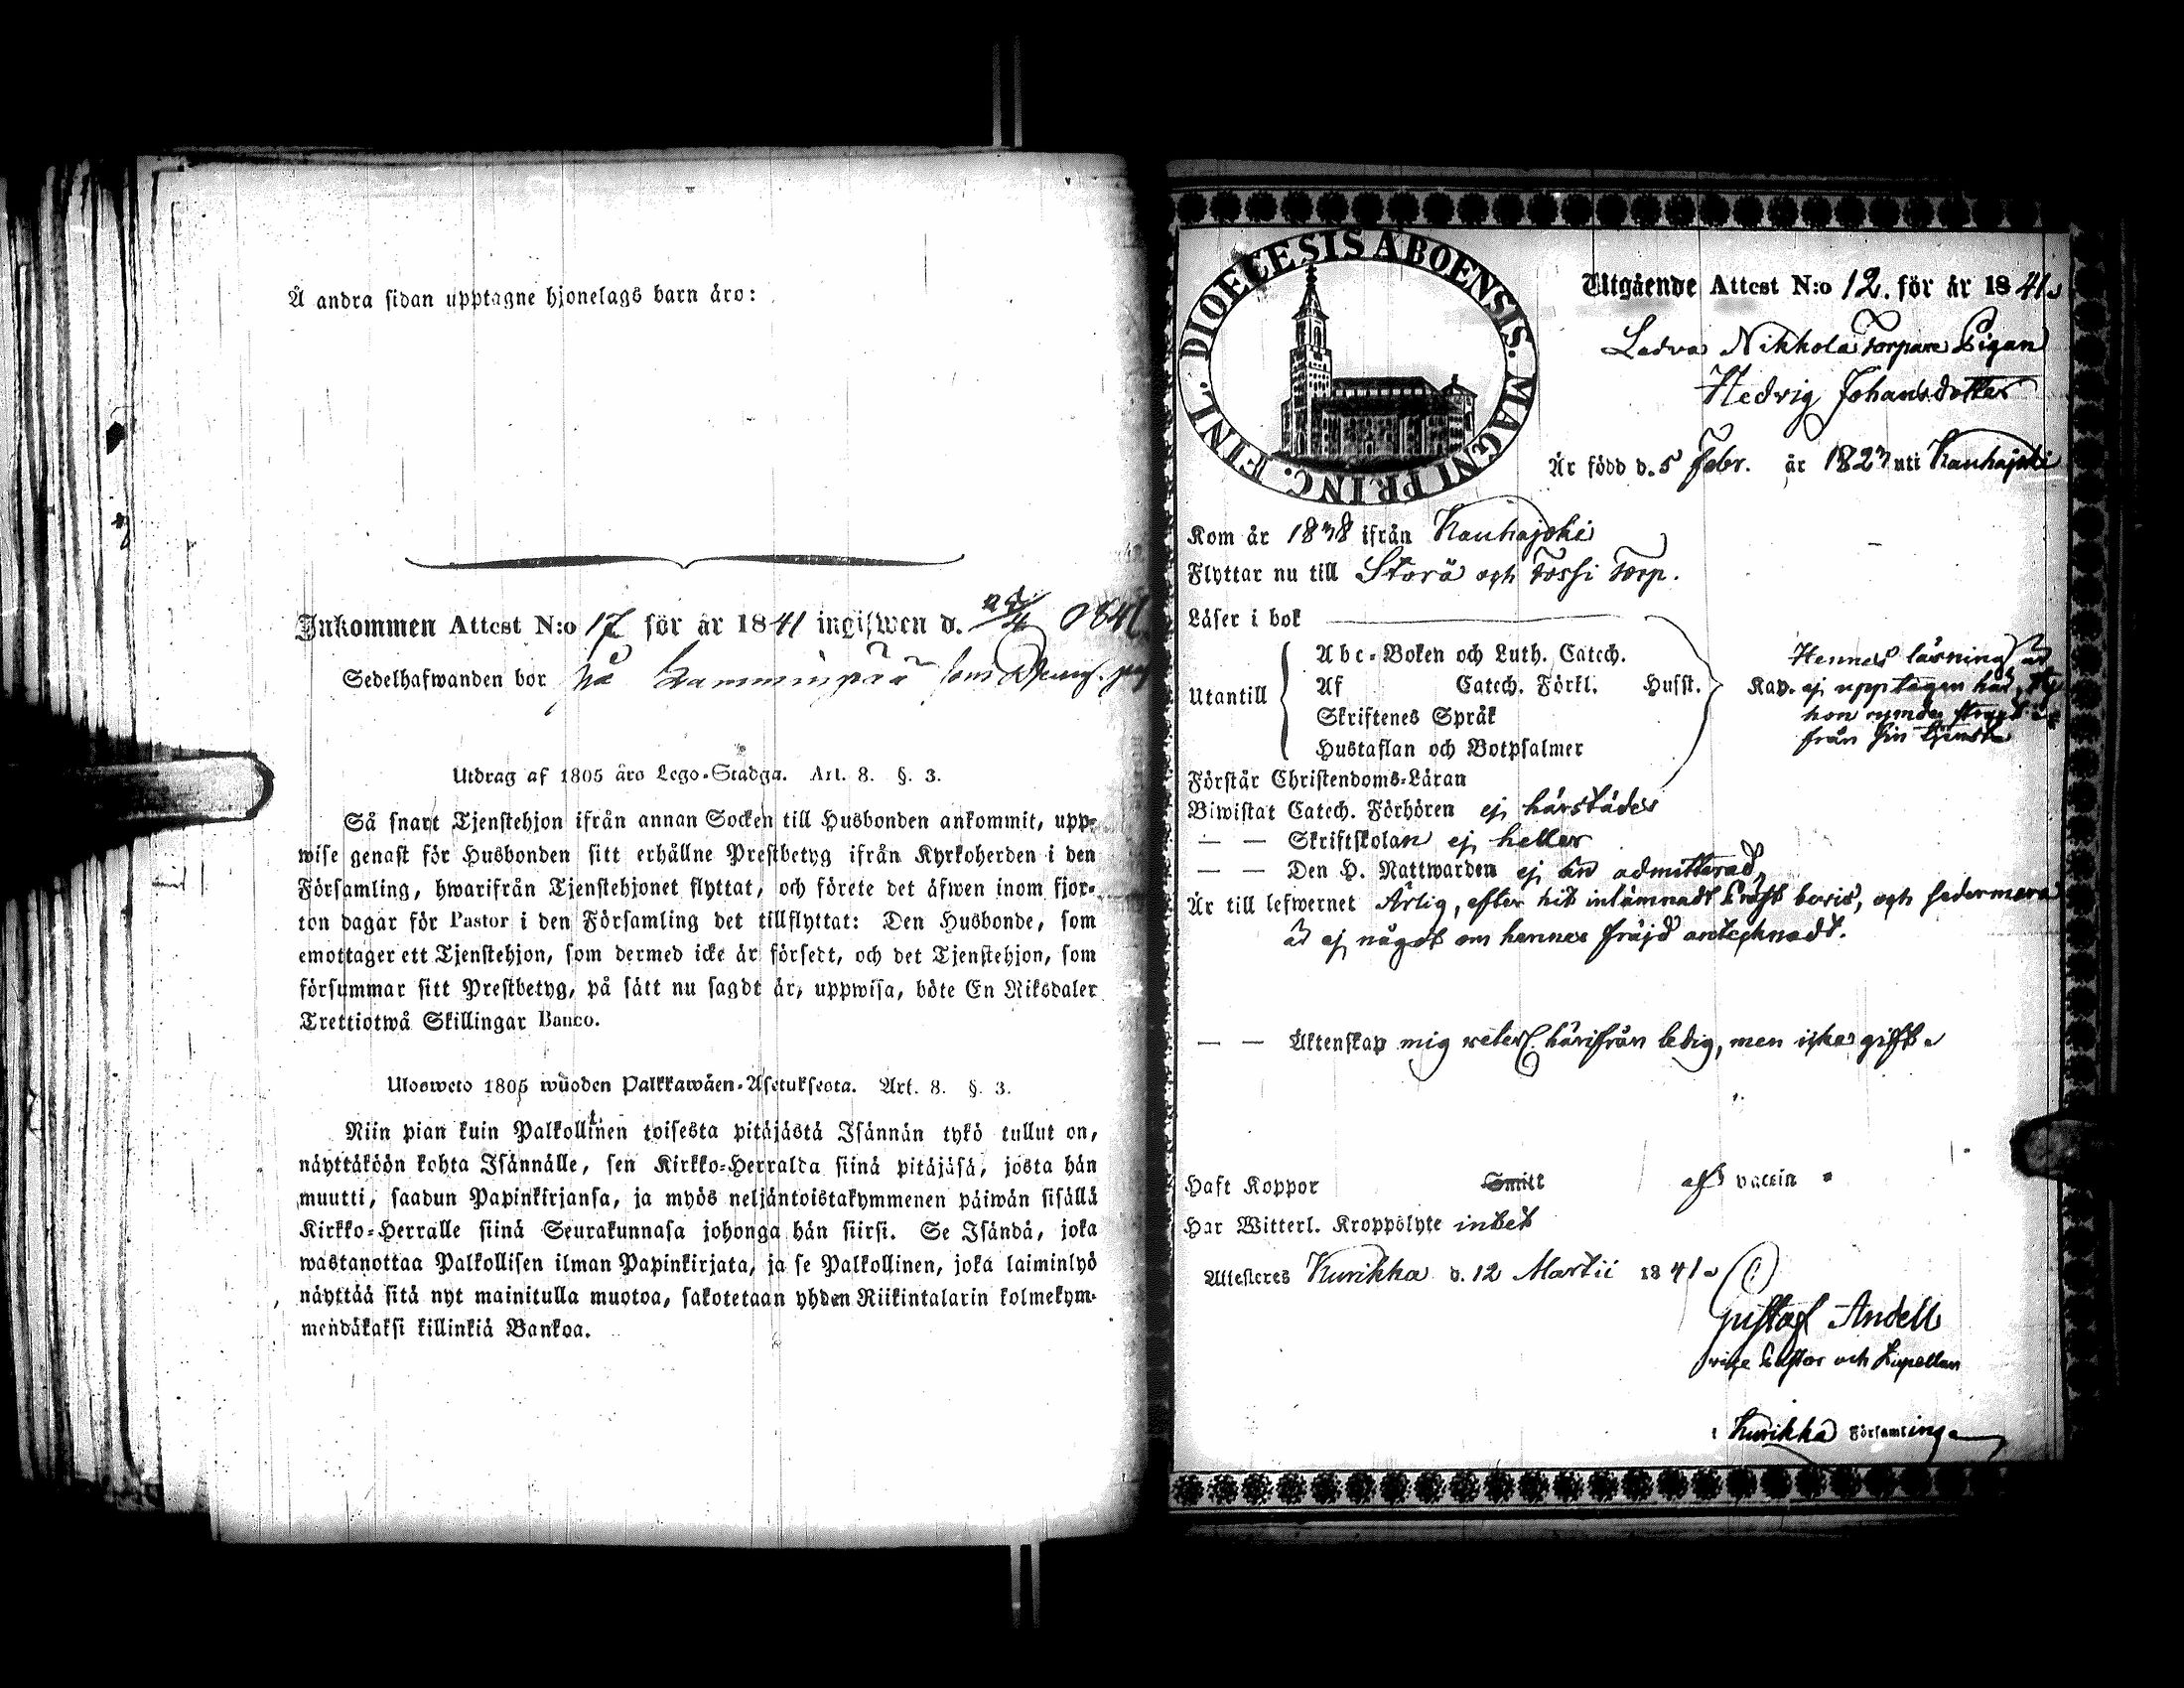 Å andra sidan upptagne hjonelags barn äro:
Inkommen Attest N:o 17 för år 1841 ingifwen d. 1841
Sedelhafwanden bor på
Utdrag af 1805 års Lego-Stadga. Art. 8. §. 3.
Så snart Tjenstehjon ifrån annan Socken till Husbonden ankommit, upp-
wise genast för Husbonden sitt erhållne Prestbetyg ifrån Kyrkoherden i den
Församling, hwarifrån Tjenstehjonet flyttat, och förete det äfwen inom fjor-
ton dagar för Pastor i den Församling det tillflyttat: Den Husbonde, som
emottager ett Tjenstehjon, som dermed icke är försedt, och det Tjenstehjon, som
försummar sitt Prestbetyg, på sätt nu sagdt är, uppwisa, böte En Riksdaler
Trettiotwå Skillingar Banco.
Ulosweto 1805 wuoden Palkkawäen-Asetuksesta. Art. 8. §. 3.
Niin pian kuin Palkollinen toisesta pitäjästä Isännän tykö tullut on,
näyttäköön kohta Isännälle, sen Kirkko-Herralda siinä pitäjäsä, josta hän
muutti, saadun Papinkirjansa, ja myös neljäntoistakymmenen päiwän sisällä
Kirkko-Herralle siinä Seurakunnasa johonga hän siirsi. Se Isändä, joka
wastanottaa Palkollisen ilman Papinkirjata, ja se Palkollinen, joka laiminlyö
näyttää sitä nyt mainitulla muotoa, sakotetaan yhden Riikintalarin kolmekym-
mendäkaksi killinkiä Bankoa.
DIOECESIS ÅBOENSIS. MAGNI PRINC. FINL.
Utgående Attest N:o 12. för år 1841.
Ladva Nikkola Torpare Pigan
Hedvig Johansdotter
Är född d. 5 Febr. år 1823 uti Kauhajoki
Kom år 1838 ifrån Kauhajoki
Flyttar nu till Storå och Torp.
Läser i bok
Utantill
Abc-Boken och Luth. Catech.
Af Catech. Förkl. Husst. Kap.
Skriftenes Språk
Hustaflan och Botpsalmer
Hennes läsning är
ej upptagen här, ty
hon rymde strax
från sin tjenst
Förstår Christendoms-Läran
Biwistat Catech. Förhören ej härstädes
— — Skriftskolan ej heller
— — Den H. Nattwarden ej än admitterad,
Är till lefwernet Ärlig, efter hit inlämnadt bevis, och sedermera
är ej något om hennes fräjd antecknadt.
— — Äktenskap mig veterl. härifrån ledig, men icke gift.
Haft Koppor Smitt af vaccin
Har Witterl. Kroppslyte intet
Attesteres Kurikka d. 12 Martii 1841.
Gustaf Andell
vice Pastor och Kapellan
i Kurikka Församling